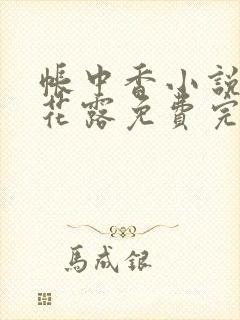 帳中香小說
花露免費完
馬成銀